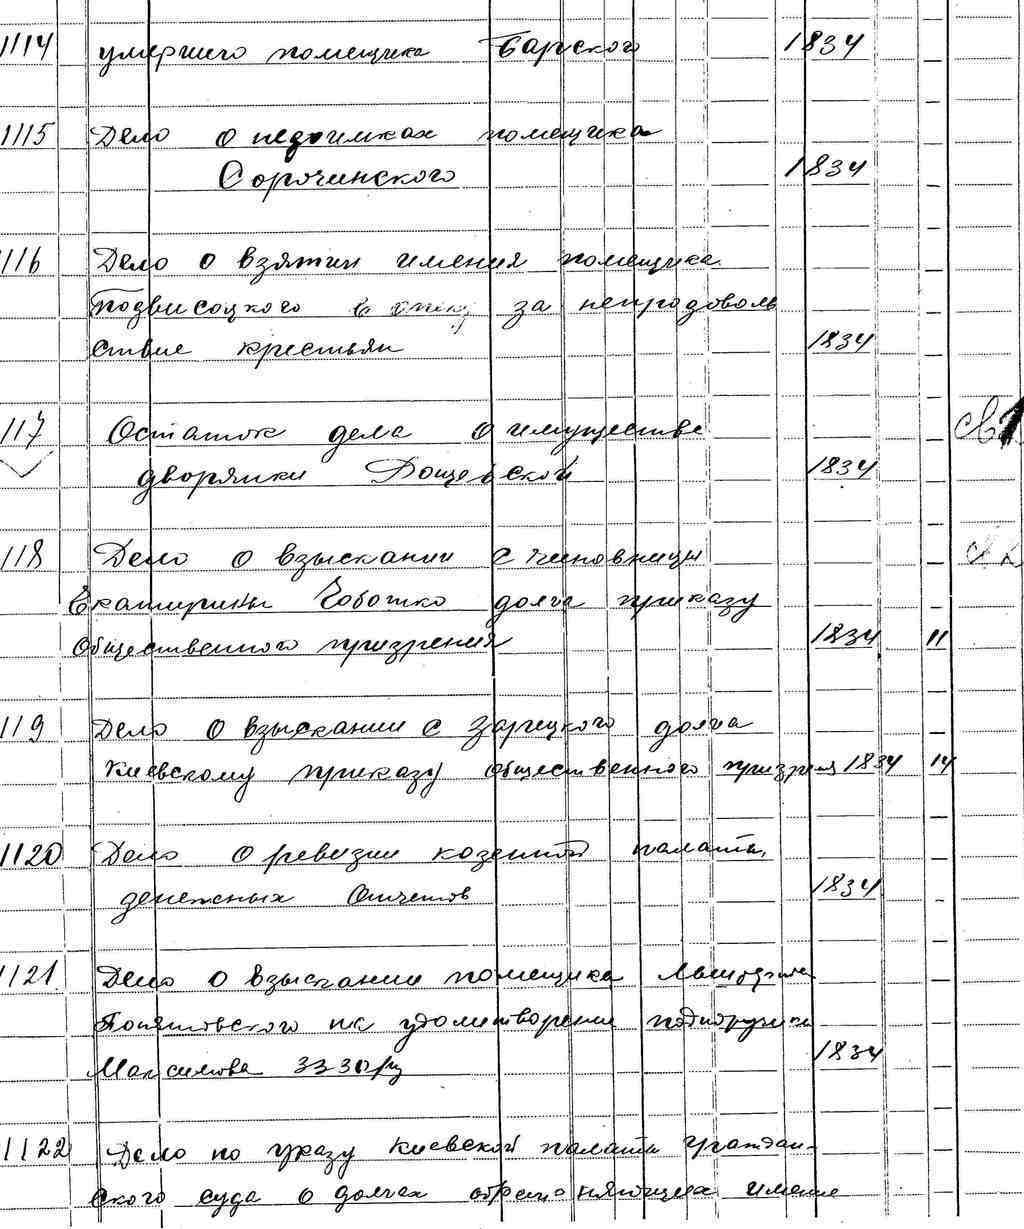 1114 умершего помещика Барского 1834
1115 Дело о недоимках помещика
Сорочинского 1834 -
1116 Дело о взятии имения помещика
Подвисоцкого в опеку за непродоволь
ствие крестьян 1834 -
117 Остаток дела о имуществе
дворянки Дощевской 1834 -
118 Дело о взыскании с чиновницы
Екатерины Чоботко долга приказу
Общественного призрения 1834 11
119 Дело о взыскании с Зарецкого долга
Киевскому приказу общественного призрения 1834 14
1120 Дело о ревизии казенной палаты,
денежных отчетов 1834 -
1121. Дело о взыскании помещика
Понятовского на удолитворение подпоручика
Максимова 3330 р 1834 -
1122 Дело по указу Киевской палаты граждан-
ского суда о долгах имение